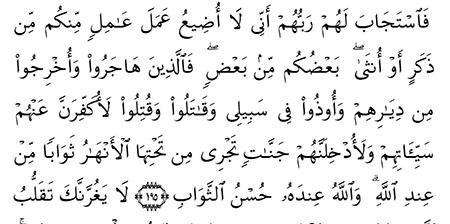 فَٱسْتَجَابَ لَهُمْ رَبُّهُمْ أَنِّى لَآ أُضِيعُ عَمَلَ عَٰمِلٍ مِّنكُم مِّن
ذَكَرٍ أَوْ أُنثَىٰ ۖ بَعْضُكُم مِّنۢ بَعْضٍ ۖ فَٱلَّذِينَ هَاجَرُوا۟ وَأُخْرِجُوا۟
مِن دِيَٰرِهِمْ وَأُوذُوا۟ فِى سَبِيلِى وَقَٰتَلُوا۟ وَقُتِلُوا۟ لَأُكَفِّرَنَّ عَنْهُمْ
سَيِّـَٔاتِهِمْ وَلَأُدْخِلَنَّهُمْ جَنَّٰتٍ تَجْرِى مِن تَحْتِهَا ٱلْأَنْهَٰرُ ثَوَابًا مِّنْ
عِندِ ٱللَّهِ ۗ وَٱللَّهُ عِندَهُۥ حُسْنُ ٱلثَّوَابِ ﴿١٩٥﴾ لَا يَغُرَّنَّكَ تَقَلُّبُ